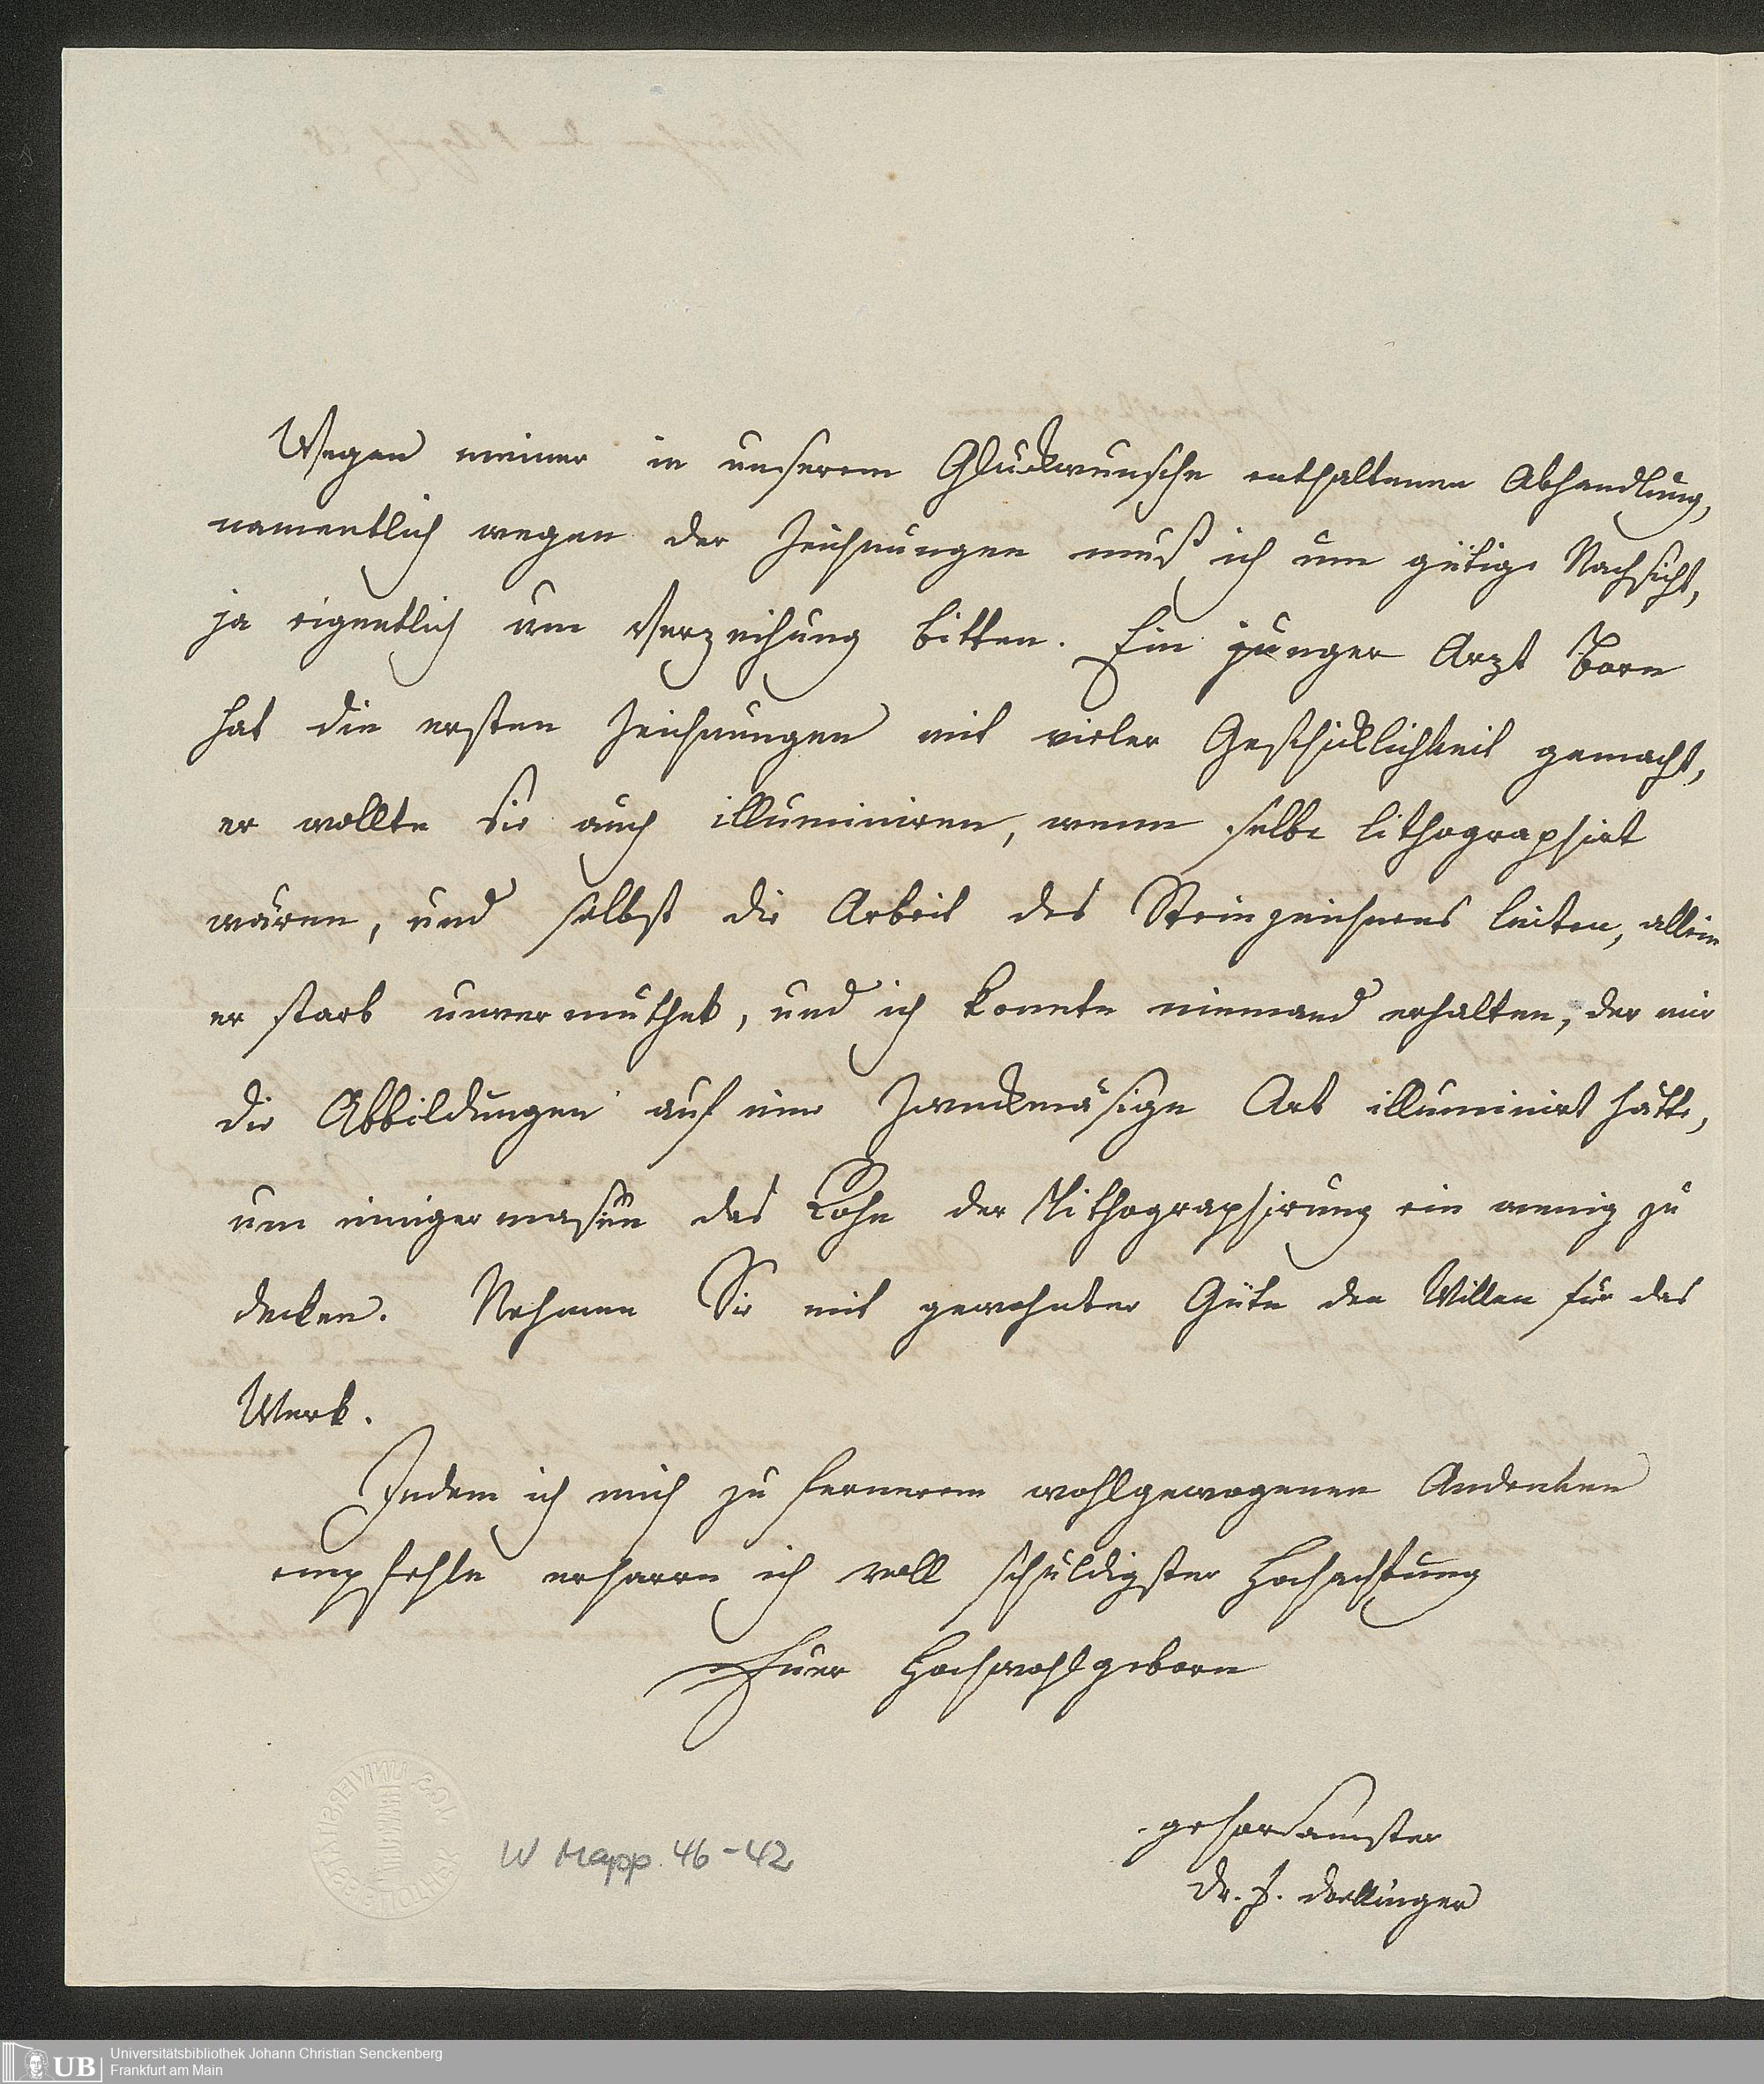 Wegen meiner in unserem Gluckwunsche enthaltenen Abhandlung,
namentlich wegen der Zeichnungen muß ich um gütige Nachsicht,
ja eigentlich um Verzeihung bitten. Ein junger Arzt Born
hat die ersten Zeichnungen mit vieler Geschicklichkeit gemacht,
er wollte sie auch illuminiren, wenn selbe lithographirt
wären, und selbst die Arbeit des Steinzeichners leiten, allein
er starb unvermuthet, und ich konnte niemand erhalten, der mir
die Abbildungen auf eine Zweckmäsige Art illuminirt hätte,
um einigermasen das der Lithographirung ein wenig zu
decken. Nehmen Sie mit gewohnter Güte den Willen für das
Werk.
Indem ich mich zu fernerem wohlgewogenen Andenken
empfehle erharre ich voll schuldigster Hochachtung
Euer Hochwohlgeborn
gehorsamster
Dr. J. Doellinger
W Mapp. 46-42
UB Universitätsbibliothek Johann Christian Senckenberg
Frankfurt am Main